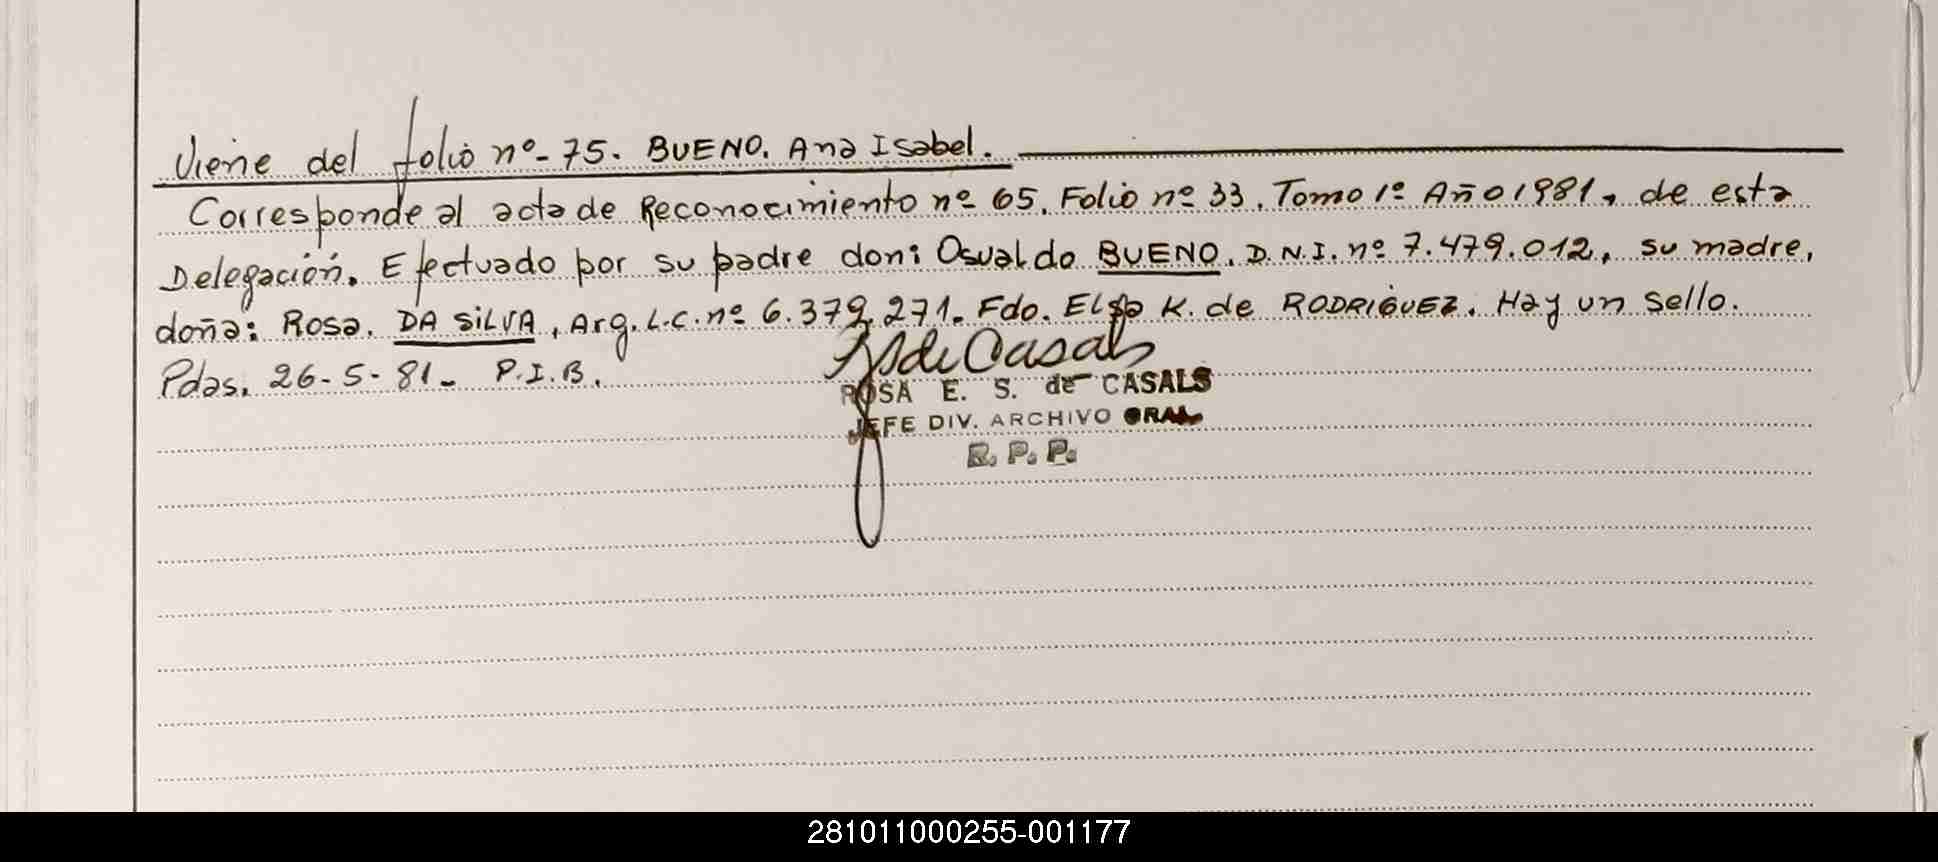 Viene del folio nº-75. BUENO. Ana Isabel.
Corresponde al acta de Reconocimiento nº 65. Folio nº 33. Tomo 1º Año 1981, de esta
Delegación. Efectuado por su padre don: Osvaldo BUENO. D.N.I. nº 7.479.012, su madre,
doña: Rosa. DA SILVA, Arg. L.C. nº 6.379.271. Fdo. Elsa K. de RODRIGUEZ. Hay un sello.
Pdas. 26-5-81- P.I.B.
de Casals
ROSA E. S. de CASALS
JEFE DIV. ARCHIVO GRAL
R. P. P.
281011000255-001177